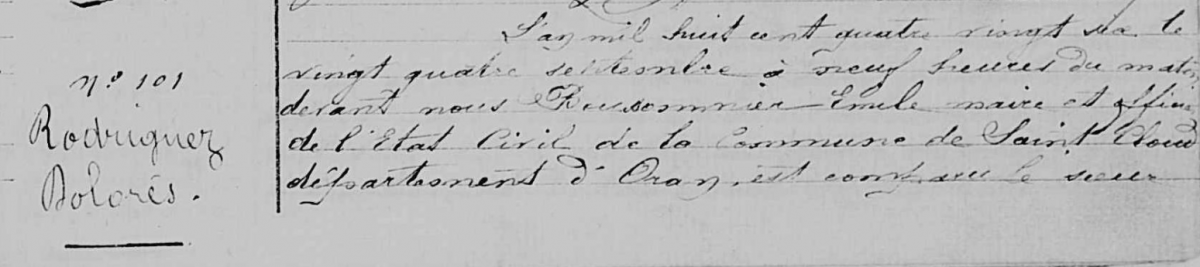 N.° 101
Rodriguez
Dolorés.
L'an mil huit cent quatre vingt six le
vingt quatre septembre à neuf heures du matin
devant nous Emile maire et officier
de l'Etat Civil de la Commune de Saint Cloud
département d'Oran, est comparu le sieur